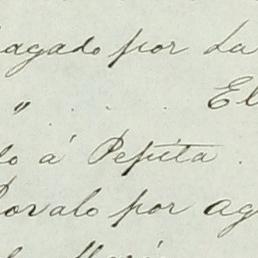 agado por La
" . . . El
do á Pepita .
ovalo por ag